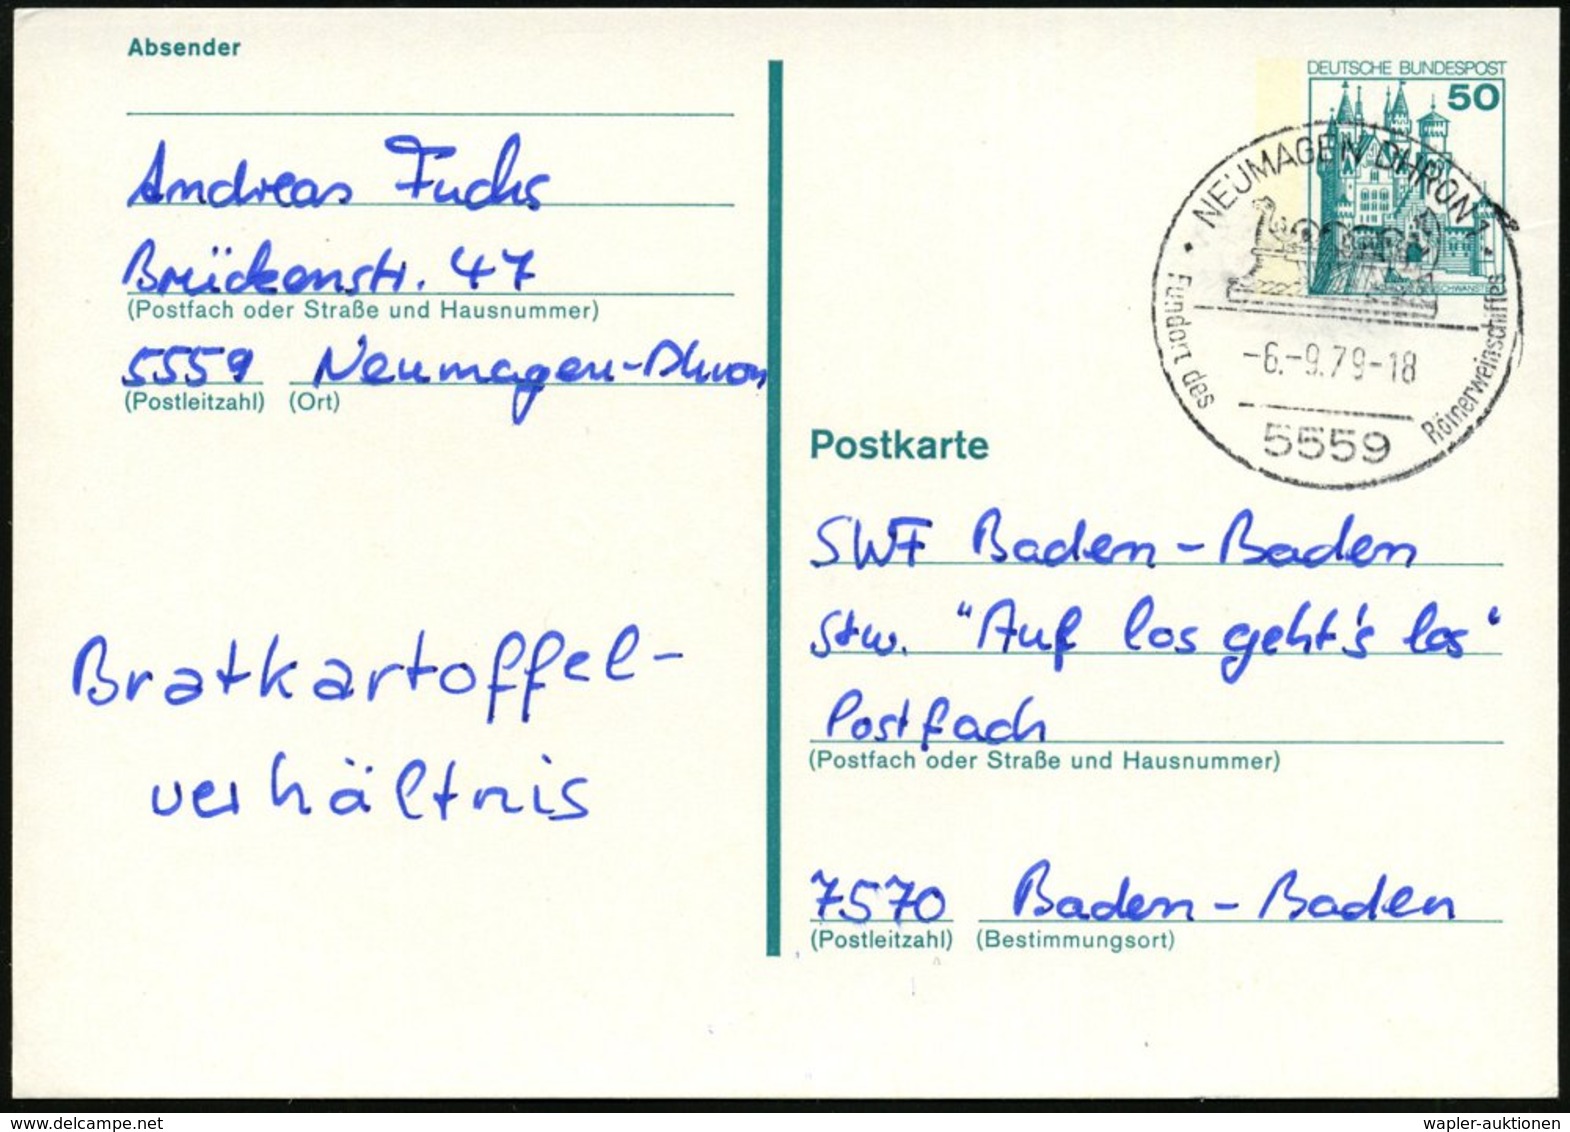 Absender
Andreas Fuchs
Brückenstr. 47
(Postfach oder Straße und Hausnummer)
5559 Neumagen-Dhron
(Postleitzahl) (Ort)
Bratkartoffel-
verhältnis
DEUTSCHE BUNDESPOST
50
NEUMAGEN DHRON 1
Fundort des
Römerweinschiffes
-6.-9.79-18
5559
Postkarte
SWF Baden-Baden
Stw. "Auf los geht's los"
Postfach
(Postfach oder Straße und Hausnummer)
7570 Baden-Baden
(Postleitzahl) (Bestimmungsort)
www.delcampe.net
wapler-auktionen